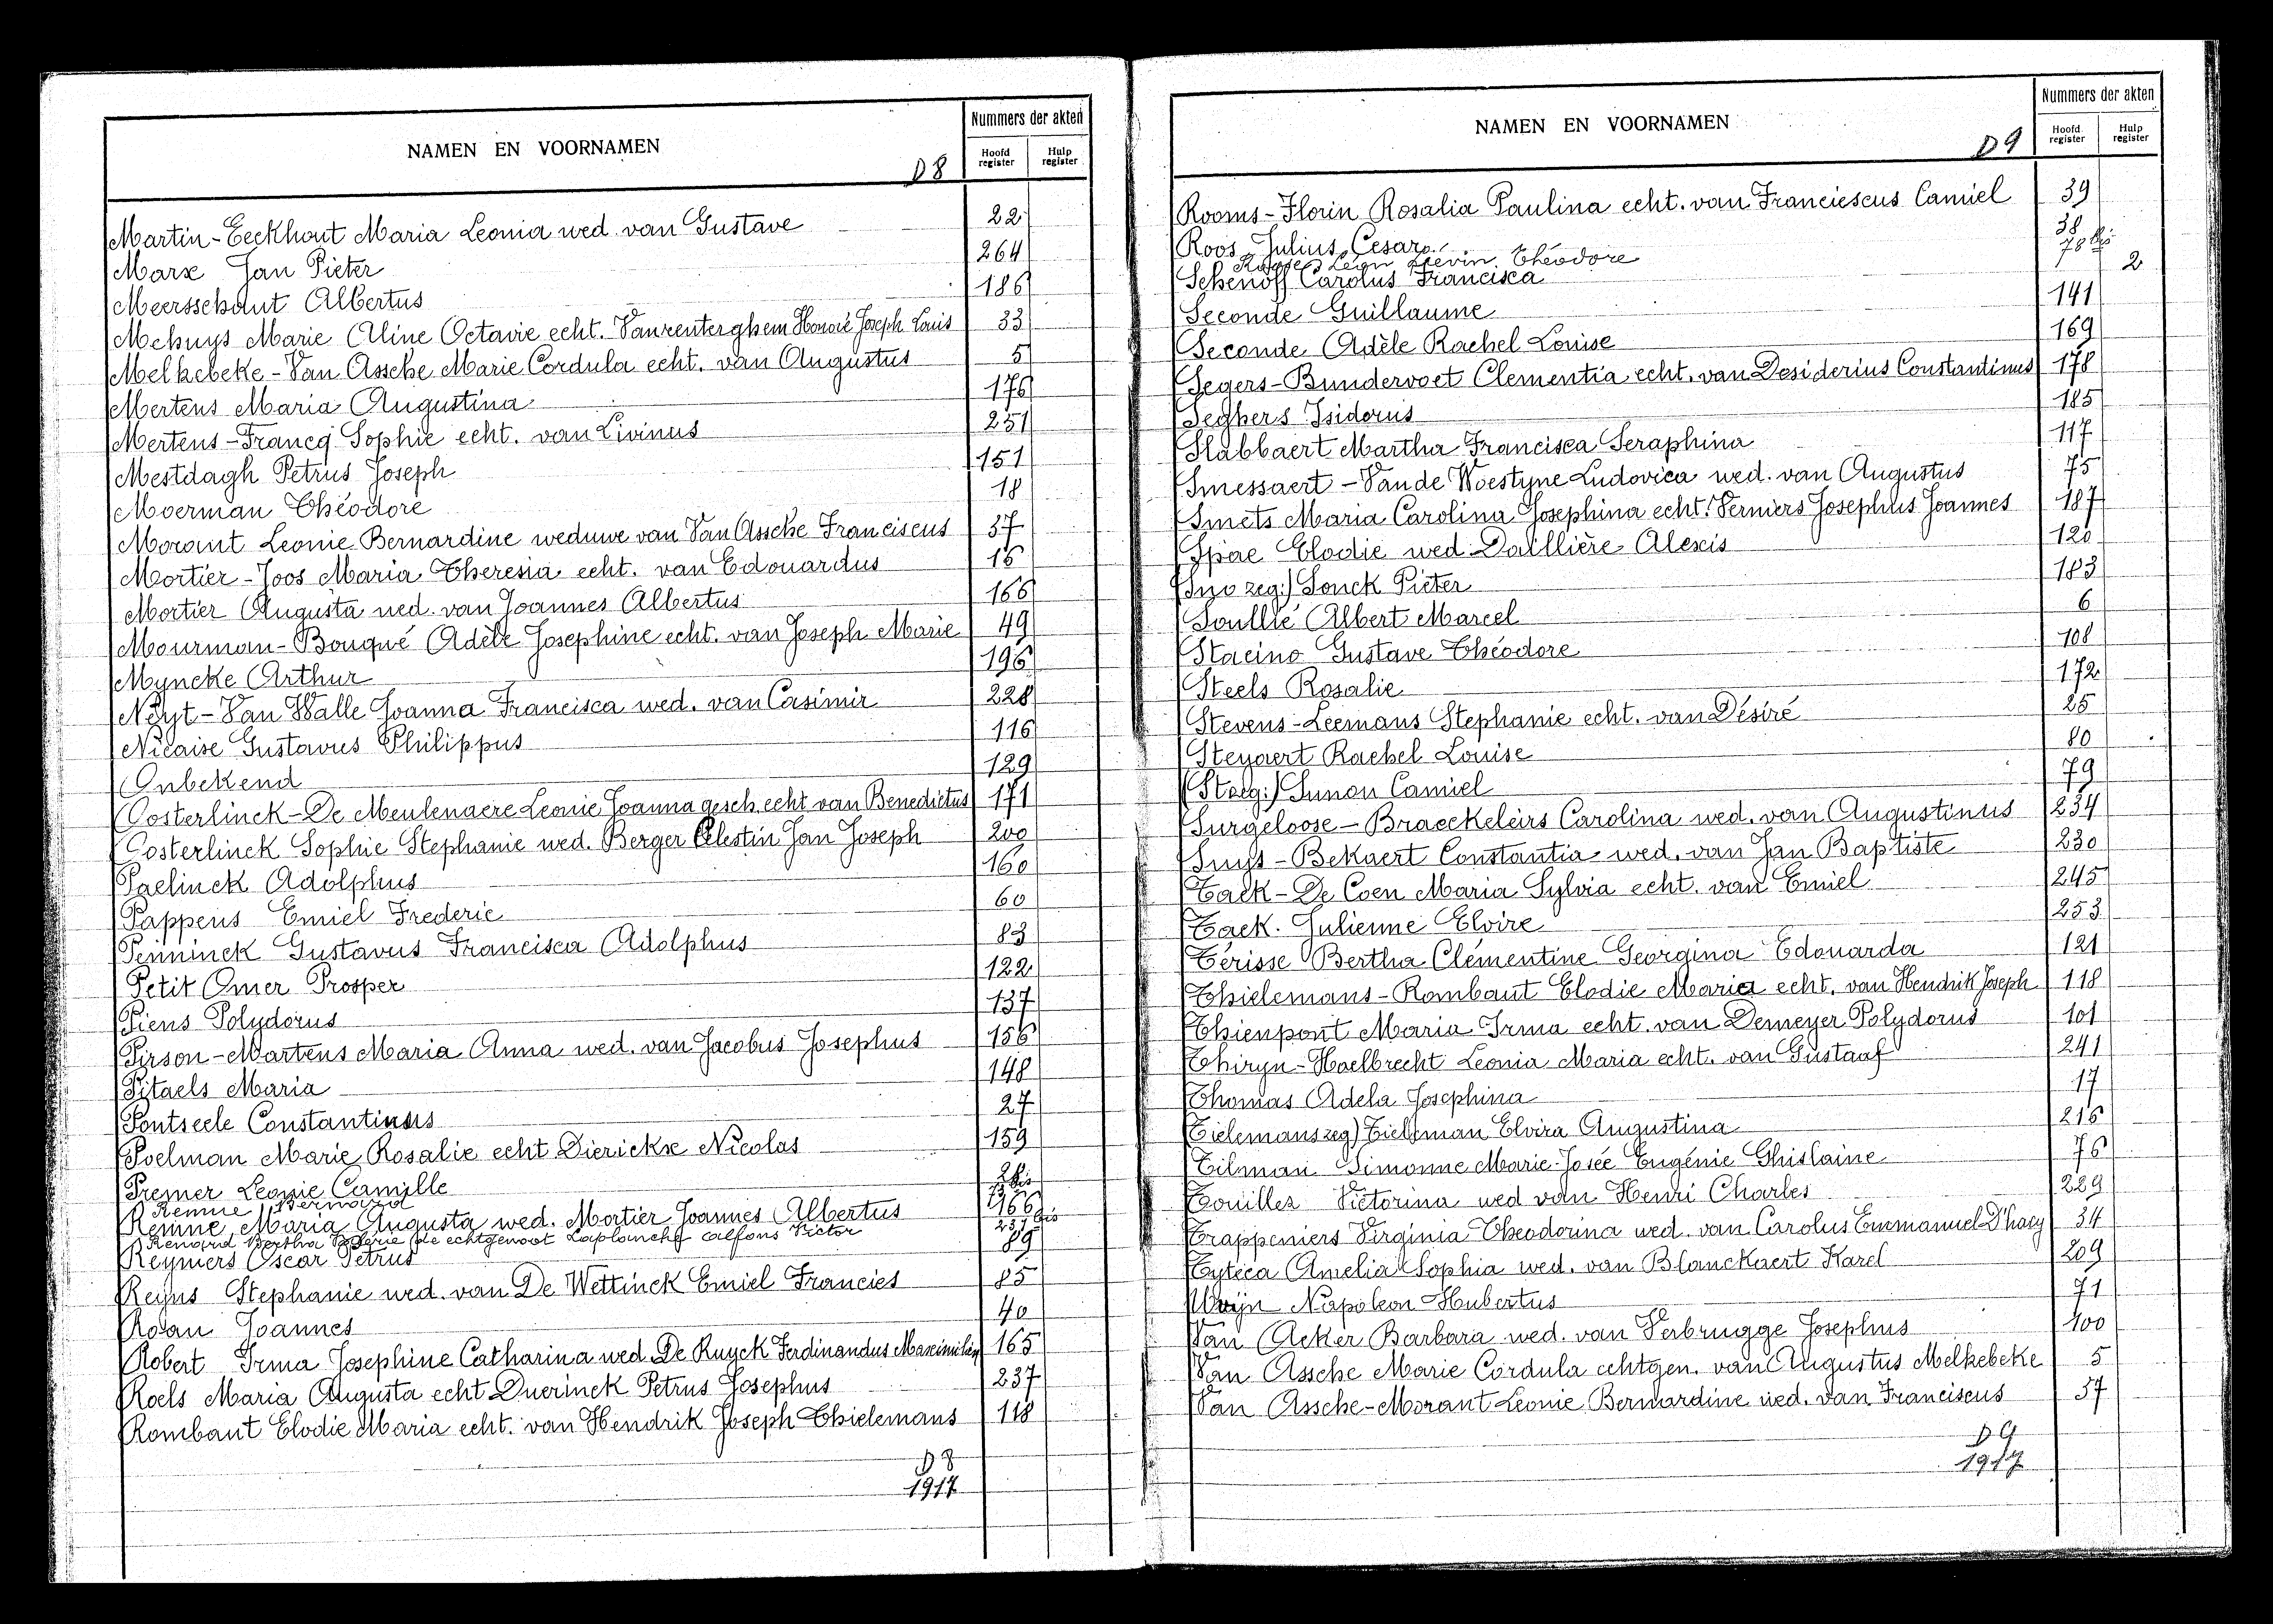 NAMEN EN VOORNAMEN
D 8
Nummers der akten
Hoofd register
Hulp register
Martin-Eeckhout Maria Leonia wed. van Gustave 22
Marx Jan Pieter 264
Meersschaut Albertus 186
Mehuys Marie Aline Octavie echt. Vanrenterghem Honoré Joseph Louis 33
Melkebeke-Van Assche Marie Cordula echt. van Augustus 5
Mertens Maria Augustina 176
Mertens-Francq Sophie echt. van Livinus 251
Mestdagh Petrus Joseph 151
Moerman Théodore 18
Morant Leonie Bernardine weduwe van Van Assche Franciscus 37
Mortier-Joos Maria Theresia echt. van Edouardus 16
Mortier Augusta wed. van Joannes Albertus 166
Mourman-Bouqué Adèle Josephine echt. van Joseph Marie 49
Myncke Arthur 196
Neyt-Van Walle Joanna Francisca wed. van Casimir 228
Nicaise Gustavus Philippus 116
Onbekend 129
Oosterlinck-De Meulenaere Leonie Joanna gesch. echt van Benedictus 171
Oosterlinck Sophie Stephanie wed. Berger Célestin Jan Joseph 200
Paelinck Adolphus 160
Pappens Emiel Frederic 60
Penninck Gustavus Francisca Adolphus 83
Petit Omer Prosper 122
Piens Polydorus 137
Pirson-Martens Maria Anna wed. van Jacobus Josephus 156
Pitaels Maria 148
Pontseele Constantinus 27
Poelman Marie Rosalie echt Dierickx Nicolas 159
Premer Leonie Camille
Remue Bernard
Remue Maria Augusta wed. Mortier Joannes Albertus 166
Renard Bertha Valerie de echtgenoot Laplanche Alfons Victor 231 bis
Reyniers Oscar Petrus 89
Reyns Stephanie wed. van De Wettinck Emiel Francies 85
Roan Joannes 40
Robert Irma Josephine Catharina wed. De Ruyck Ferdinandus Maximilien 165
Roels Maria Augusta echt Duerinck Petrus Josephus 237
Rombaut Elodie Maria echt. van Hendrik Joseph Thielemans 118
D 8
1917
NAMEN EN VOORNAMEN
D 9
Nummers der akten
Hoofd register
Hulp register
Rooms-Florin Rosalia Paulina echt. van Franciescus Camiel 39
Roos Julius Cesar 38
Roose Léon Liévin Théodore 78 bis
Schenoff Carolus Francisca 2
Seconde Guillaume 141
Seconde Adèle Rachel Louise 169
Segers-Bundervoet Clementia echt. van Desiderius Constantinus 178
Seghers Isidorus 185
Slabbaert Martha Francisca Seraphina 117
Smessaert-Van de Woestyne Ludovica wed. van Augustus 75
Smets Maria Carolina Josephina echt. Verniers Josephus Joannes 187
Spae Elodie wed. Daillière Alexis 120
(Sno zeg:) Sonck Pieter 183
Soullié Albert Marcel 6
Stacino Gustave Théodore 108
Steels Rosalie 172
Stevens-Leemans Stephanie echt. van Désiré 25
Steyaert Rachel Louise 80
Sunon Camiel 79
Surgeloose-Braeckeleirs Carolina wed. van Augustinus 234
Suys-Bekaert Constantia wed. van Jan Baptiste 230
Tack-De Coen Maria Sylvia echt. van Emiel 245
Tack. Julienne Elvire 253
Térisse Bertha Clémentine Georgina Edouarda 121
Thielemans-Rombaut Elodie Maria echt. van Hendrik Joseph 118
Thienpont Maria Irma echt. van Demeyer Polydorus 101
Thiryn-Haelbrecht Leonia Maria echt. van Gustaaf 241
Thomas Adela Josephina 17
(Tielemans zeg) Tieleman Elvira Augustina 216
Tilman Simonne Marie-Josée Eugénie Ghislaine 76
Touillez Victorina wed van Henri Charles 229
Trappeniers Virginia Theodorina wed. van Carolus Emmanuel D'hacy 34
Tyteca Amelia Sophia wed. van Blanckaert Karel 209
Napoleon Hubertus 71
Van Acker Barbara wed. van Verbrugge Josephus 100
Van Assche Marie Cordula echtgen. van Augustus Melkebeke 5
Van Assche-Morant Leonie Bernardine wed. van Franciscus 57
D 9
1917